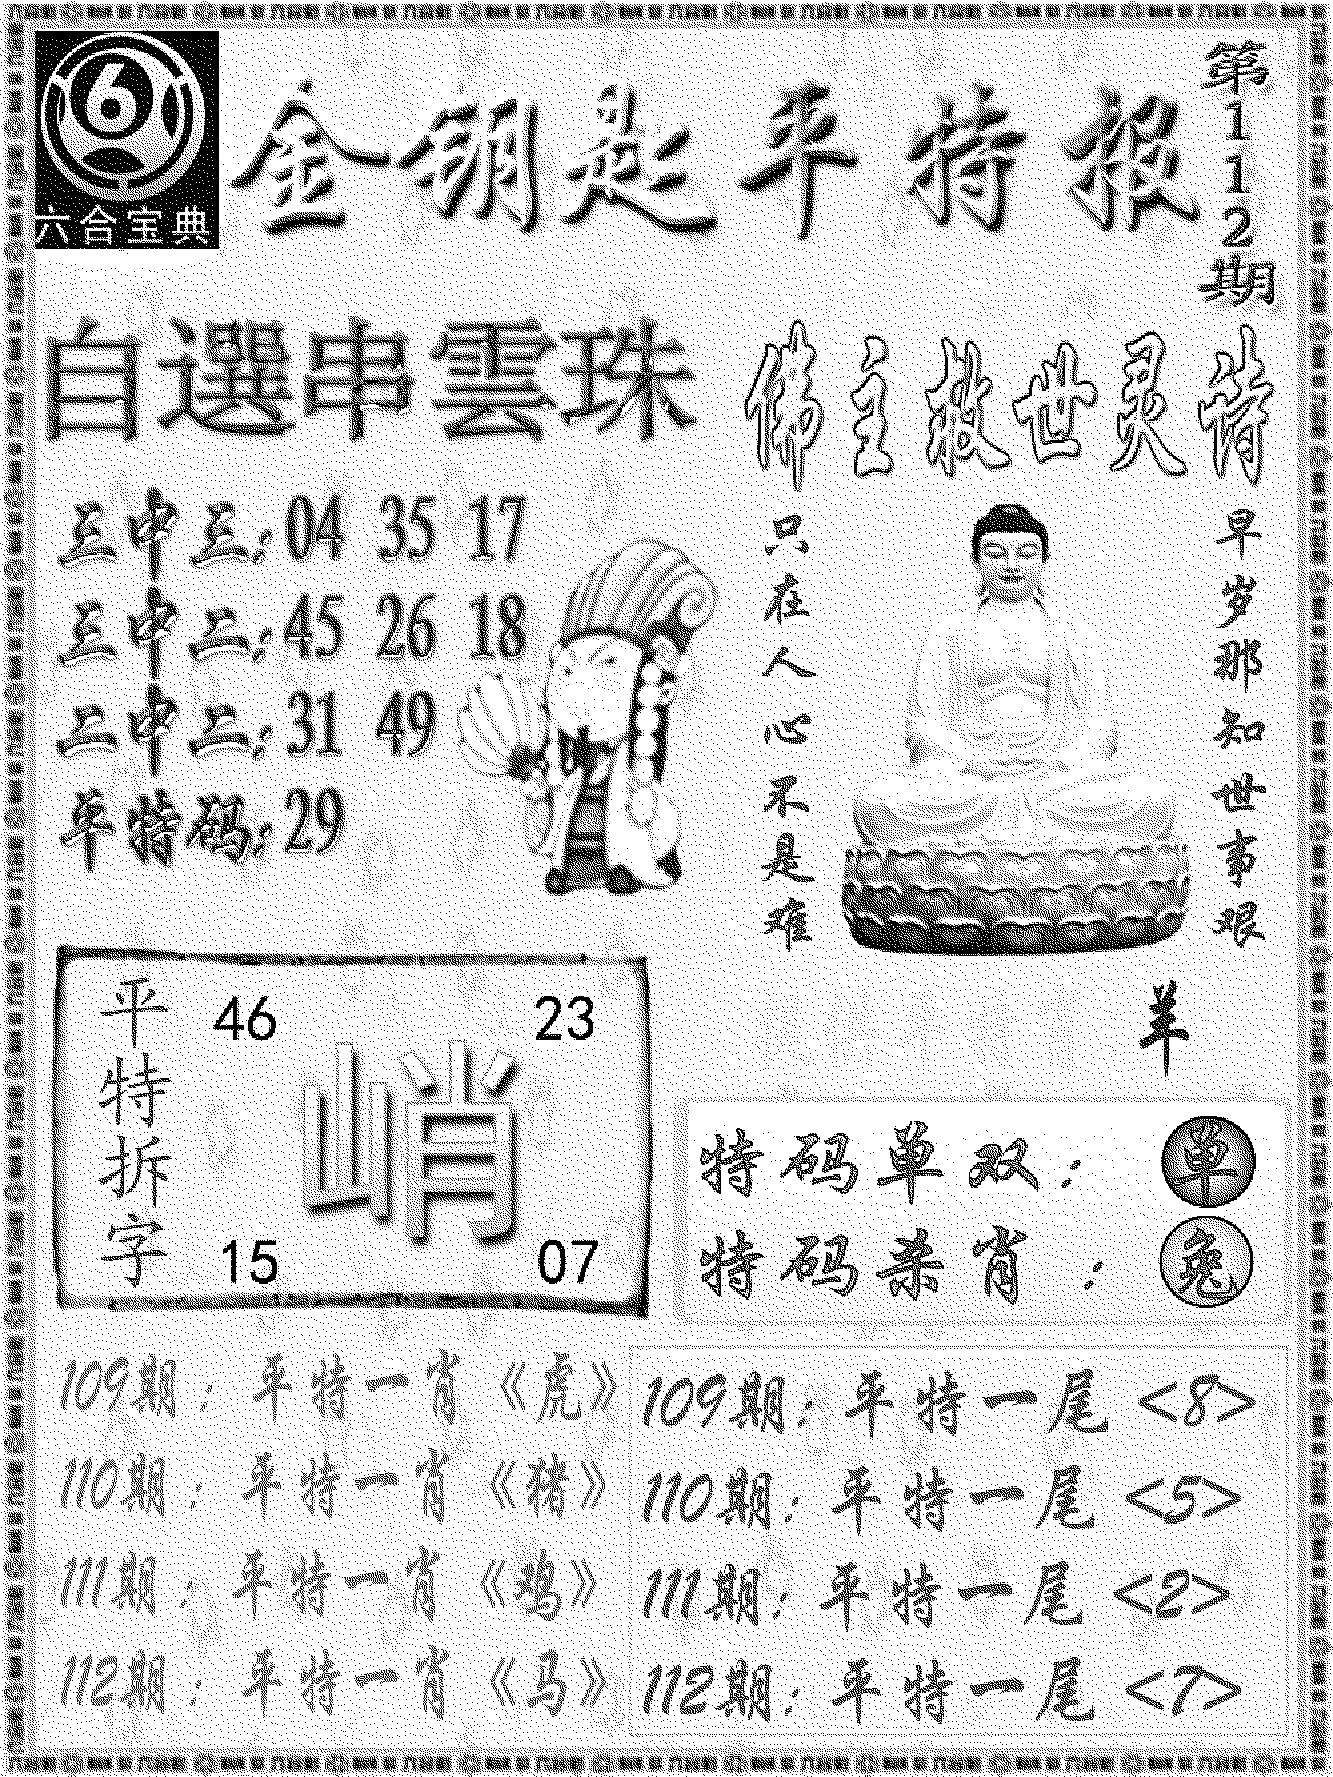 6
六合宝典
金钥匙平特报
第112期
自選串雲珠
三中三:04 35 17
三中二:45 26 18
二中二:31 49
平特码:29
佛主救世灵诗
早岁那知世事艰
只在人心不是难
羊
平特拆字
46 23
峭
15 07
特码单双:单
特码杀肖:兔
109期:平特一肖《虎》
110期:平特一肖《猪》
111期:平特一肖《鸡》
112期:平特一肖《马》
109期:平特一尾<8>
110期:平特一尾<5>
111期:平特一尾<2>
112期:平特一尾<7>